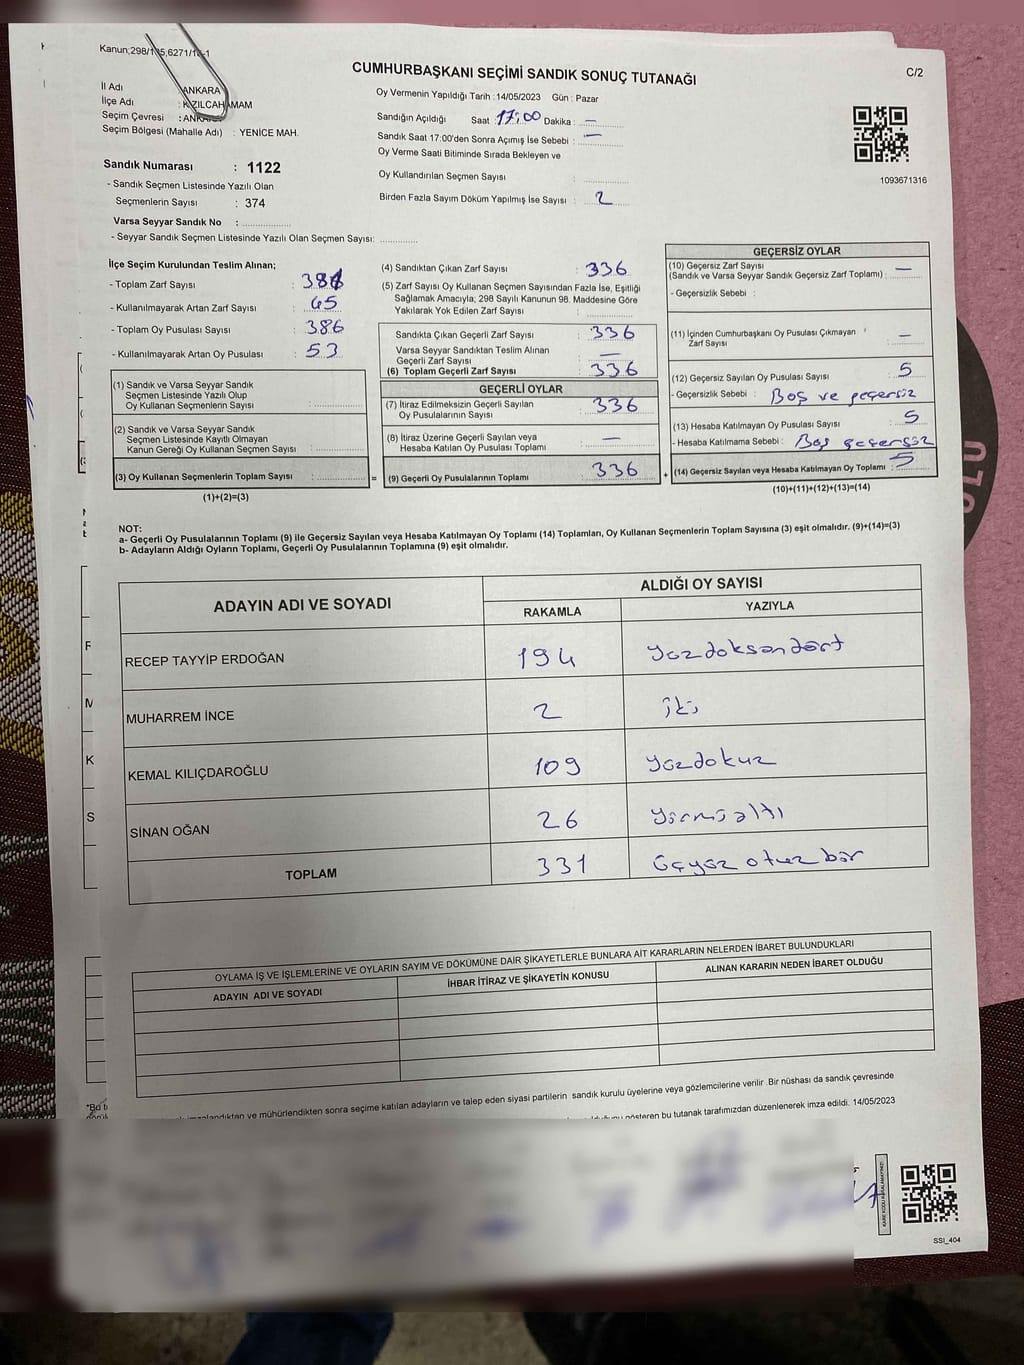 Kanun;298/105,6271/18-1
CUMHURBAŞKANI SEÇİMİ SANDIK SONUÇ TUTANAĞI
C/2
İl Adı : ANKARA
İlçe Adı : KIZILCAHAMAM
Seçim Çevresi : ANKARA
Seçim Bölgesi (Mahalle Adı) : YENİCE MAH.
Sandık Numarası : 1122
- Sandık Seçmen Listesinde Yazılı Olan
Seçmenlerin Sayısı : 374
Varsa Seyyar Sandık No :
- Seyyar Sandık Seçmen Listesinde Yazılı Olan Seçmen Sayısı:
Oy Vermenin Yapıldığı Tarih :14/05/2023 Gün : Pazar
Sandığın Açıldığı Saat : 17:00 Dakika : —
Sandık Saat 17:00'den Sonra Açılmış İse Sebebi : —
Oy Verme Saati Bitiminde Sırada Bekleyen ve
Oy Kullandırılan Seçmen Sayısı :
Birden Fazla Sayım Döküm Yapılmış İse Sayısı : 2
1093671316
İlçe Seçim Kurulundan Teslim Alınan;
- Toplam Zarf Sayısı :
- Kullanılmayarak Artan Zarf Sayısı : 45
- Toplam Oy Pusulası Sayısı : 386
- Kullanılmayarak Artan Oy Pusulası : 53
(1) Sandık ve Varsa Seyyar Sandık
Seçmen Listesinde Yazılı Olup
Oy Kullanan Seçmenlerin Sayısı :
(2) Sandık ve Varsa Seyyar Sandık
Seçmen Listesinde Kayıtlı Olmayan
Kanun Gereği Oy Kullanan Seçmen Sayısı :
(3) Oy Kullanan Seçmenlerin Toplam Sayısı :
(1)+(2)=(3)
(4) Sandıktan Çıkan Zarf Sayısı : 336
(5) Zarf Sayısı Oy Kullanan Seçmen Sayısından Fazla İse, Eşitliği
Sağlamak Amacıyla; 298 Sayılı Kanunun 98. Maddesine Göre
Yakılarak Yok Edilen Zarf Sayısı :
Sandıkta Çıkan Geçerli Zarf Sayısı : 336
Varsa Seyyar Sandıktan Teslim Alınan
Geçerli Zarf Sayısı : —
(6) Toplam Geçerli Zarf Sayısı : 336
GEÇERLİ OYLAR
(7) İtiraz Edilmeksizin Geçerli Sayılan
Oy Pusulalarının Sayısı : 336
(8) İtiraz Üzerine Geçerli Sayılan veya
Hesaba Katılan Oy Pusulası Toplamı : —
= (9) Geçerli Oy Pusulalarının Toplamı : 336 +
GEÇERSİZ OYLAR
(10) Geçersiz Zarf Sayısı
(Sandık ve Varsa Seyyar Sandık Geçersiz Zarf Toplamı) : —
- Geçersizlik Sebebi :
(11) İçinden Cumhurbaşkanı Oy Pusulası Çıkmayan
Zarf Sayısı : —
(12) Geçersiz Sayılan Oy Pusulası Sayısı : 5
- Geçersizlik Sebebi : Boş ve geçersiz
(13) Hesaba Katılmayan Oy Pusulası Sayısı : 5
- Hesaba Katılmama Sebebi : Boş geçersiz
(14) Geçersiz Sayılan veya Hesaba Katılmayan Oy Toplamı : 5
(10)+(11)+(12)+(13)=(14)
NOT:
a- Geçerli Oy Pusulalarının Toplamı (9) ile Geçersiz Sayılan veya Hesaba Katılmayan Oy Toplamı (14) Toplamları, Oy Kullanan Seçmenlerin Toplam Sayısına (3) eşit olmalıdır. (9)+(14)=(3)
b- Adayların Aldığı Oyların Toplamı, Geçerli Oy Pusulalarının Toplamına (9) eşit olmalıdır.
ADAYIN ADI VE SOYADI ALDIĞI OY SAYISI
RAKAMLA YAZIYLA
RECEP TAYYİP ERDOĞAN 194 yüzdoksandört
MUHARREM İNCE 2 iki
KEMAL KILIÇDAROĞLU 109 yüzdokuz
SİNAN OĞAN 26 yirmialtı
TOPLAM 331 üçyüz otuz bir
OYLAMA İŞ VE İŞLEMLERİNE VE OYLARIN SAYIM VE DÖKÜMÜNE DAİR ŞİKAYETLERLE BUNLARA AİT KARARLARIN NELERDEN İBARET BULUNDUKLARI
ADAYIN ADI VE SOYADI İHBAR İTİRAZ VE ŞİKAYETİN KONUSU ALINAN KARARIN NEDEN İBARET OLDUĞU
ve mühürlendikten sonra seçime katılan adayların ve talep eden siyasi partilerin sandık kurulu üyelerine veya gözlemcilerine verilir .Bir nüshası da sandık çevresinde
gösteren bu tutanak tarafımızdan düzenlenerek imza edildi. 14/05/2023
SSI_404